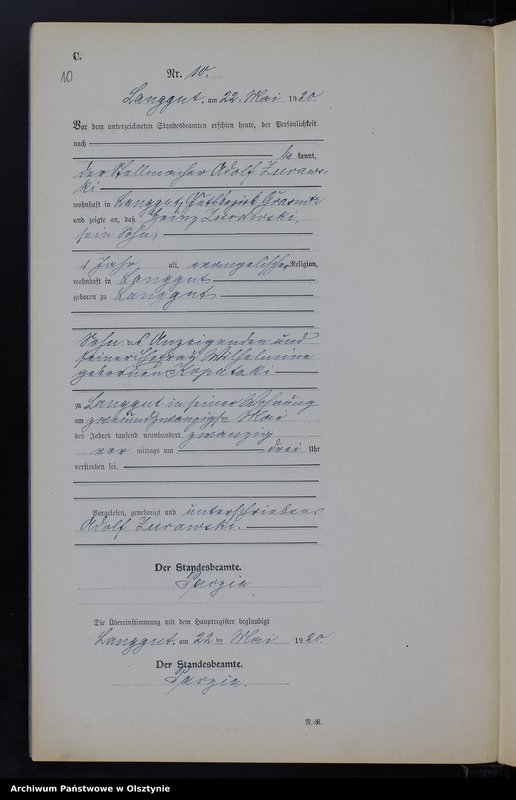 C.
10
Nr. 10.
Langgut, am 22. Mai 1920.
Vor dem unterzeichneten Standesbeamten erschien heute, der Persönlichkeit
nach
be kannt,
der Stellmacher Adolf Zuraws-
ki
wohnhaft in Langgut, Gutsbezirk
und zeigte an, daß Heinz Zurawski,
sein Sohn,
1 Jahr alt, evangelischer Religion,
wohnhaft in Langgut
geboren zu Langgut
Sohn des Anzeigenden und
seiner Ehefrau Wilhelmine
gebornen
zu Langgut in seiner Wohnung
am zweiundzwanzigsten Mai
des Jahres tausend neunhundert zwanzig
vor mittags um drei Uhr
verstorben sei.
Vorgelesen, genehmigt und unterschrieben
Adolf Zurawski.
Der Standesbeamte.
Die Übereinstimmung mit dem Hauptregister beglaubigt
Langgut, am 22 ten Mai 1920.
Der Standesbeamte.
N.-R.
Archiwum Państwowe w Olsztynie